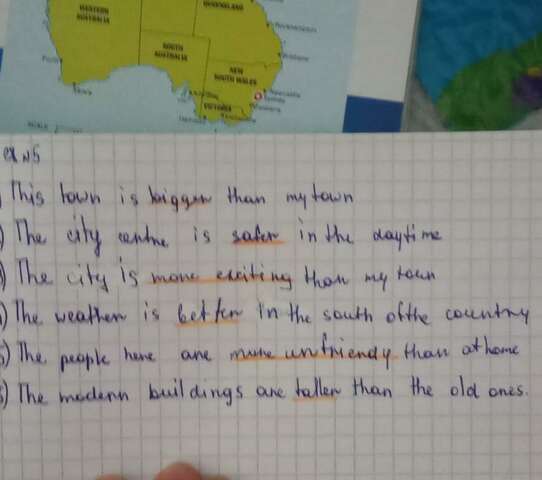 WESTERN AUSTRALIA
QUEENSLAND
SOUTH AUSTRALIA
NEW SOUTH WALES
VICTORIA
Brisbane
Newcastle
Sydney
Perth
ex N5
This town is bigger than my town
The city centre is safer in the daytime
The city is more exciting than my town
The weather is better in the south of the country
5) The people here are more unfriendy than at home
6) The modern buildings are taller than the old ones.